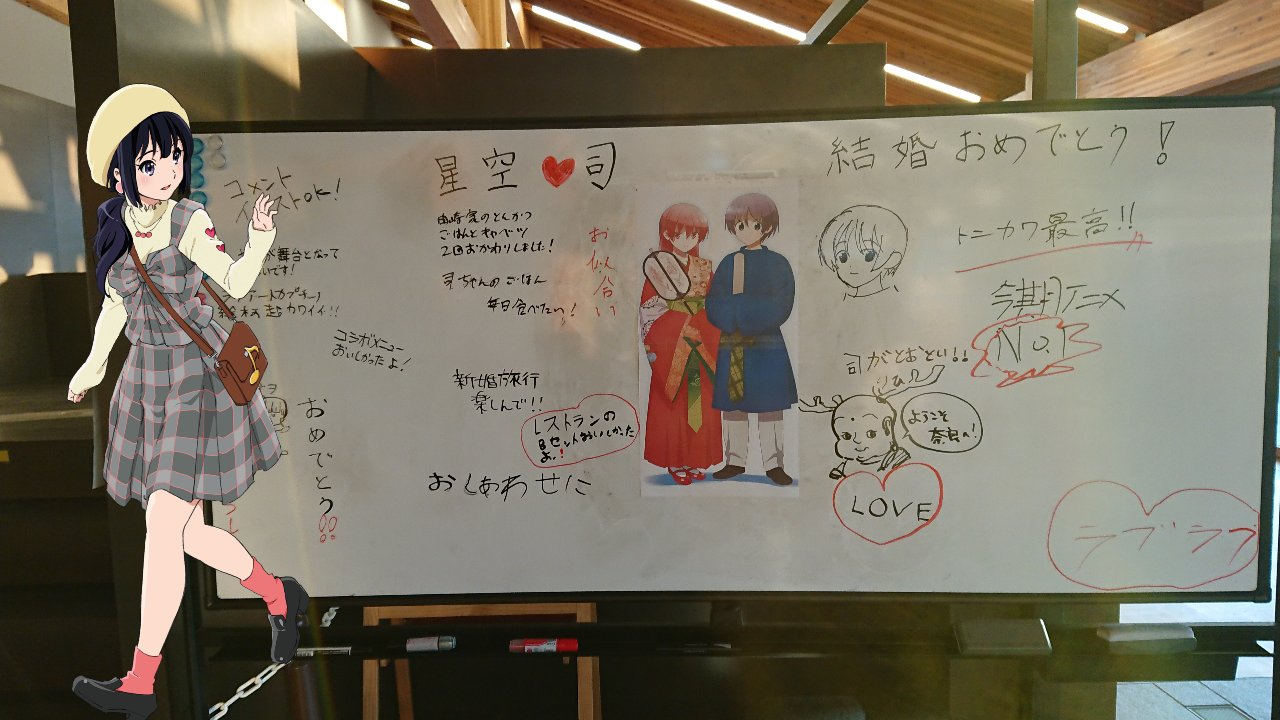 星空♥司
結婚おめでとう!
コメント
イラストOK!
舞台となって
です!
超カワイイ!!
コラボメニュー
おいしかったよ!
おめでとう!!
由崎家のとんかつ
ごはんとキャベツ
2回おかわりしました!
司ちゃんのごはん
毎日食べたい!
お似合い
新婚旅行
楽しんで!!
レストランの
Bセットおいしかった
よ!
おしあわせに
トニカワ最高!!
今期アニメ
No.1
司がとおとい!!
ようこそ
奈良へ!
LOVE
ラブラブ